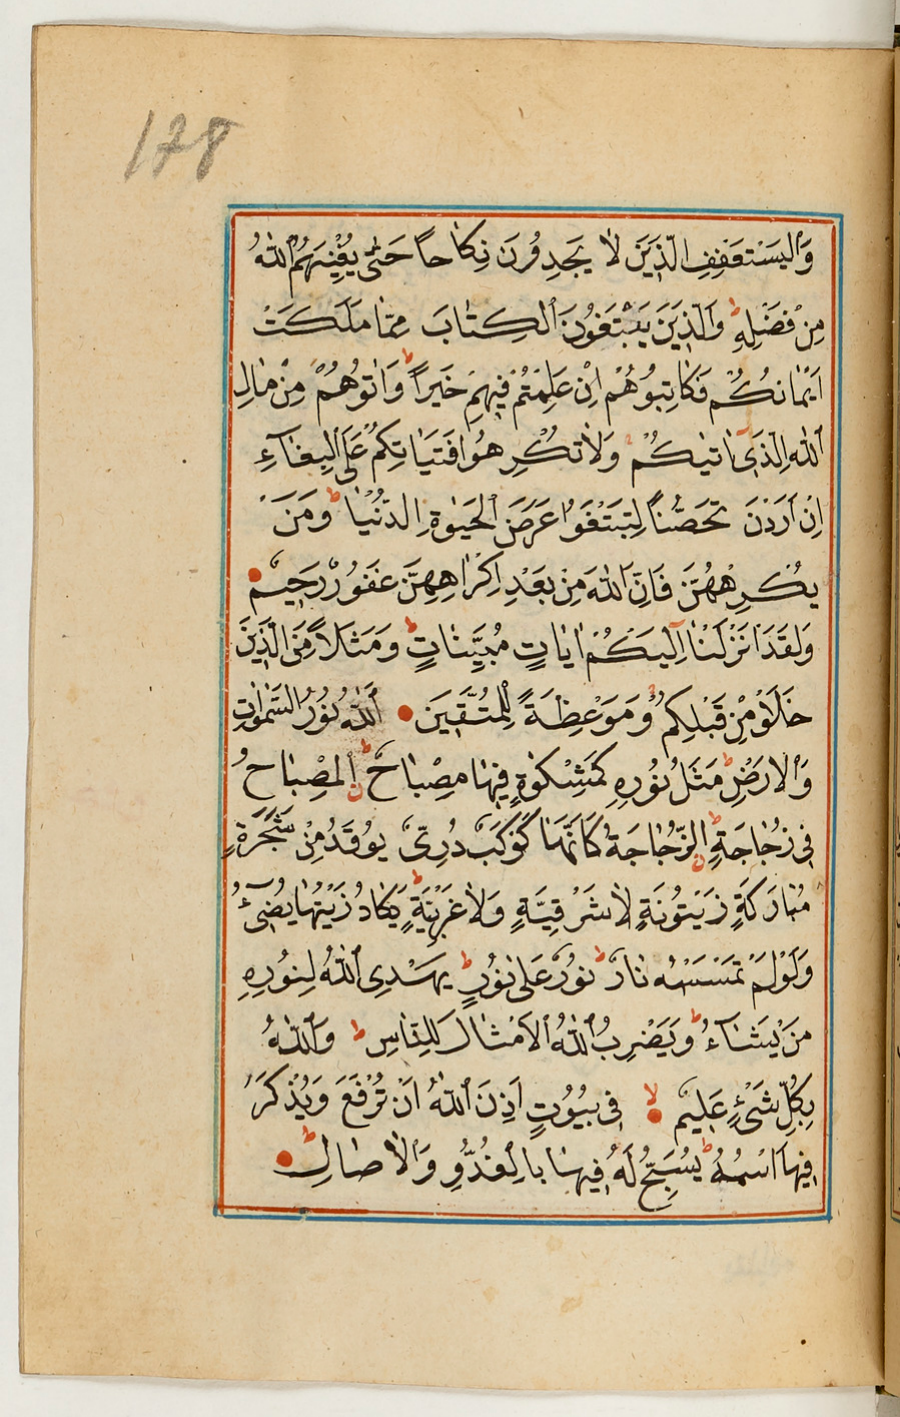 178
وَلْيَسْتَعْفِفِ الَّذِينَ لَا يَجِدُونَ نِكَاحاً حَتّٰى يُغْنِيَهُمُ اللّٰهُ
مِنْ فَضْلِهِ ط وَالَّذِينَ يَبْتَغُونَ الْكِتَابَ مِمَّا مَلَكَتْ
اَيْمَانُكُمْ فَكَاتِبُوهُمْ اِنْ عَلِمْتُمْ فِيهِمْ خَيْراً ط وَاٰتُوهُمْ مِنْ مَالِ
اللّٰهِ الَّذِى اٰتٰيكُمْ ط وَلَا تُكْرِهُوا فَتَيَاتِكُمْ عَلَى الْبِغَٓاءِ
اِنْ اَرَدْنَ تَحَصُّناً لِتَبْتَغُوا عَرَضَ الْحَيٰوةِ الدُّنْيَا ط وَمَنْ
يُكْرِهْهُنَّ فَاِنَّ اللّٰهَ مِنْ بَعْدِ اِكْرَاهِهِنَّ غَفُورٌ رَحِيمٌ
وَلَقَدْ اَنْزَلْنَٓا اِلَيْكُمْ اٰيَاتٍ مُبَيِّنَاتٍ ط وَمَثَلاً مِنَ الَّذِينَ
خَلَوْا مِنْ قَبْلِكُمْ وَمَوْعِظَةً لِلْمُتَّقِينَ اَللّٰهُ نُورُ السَّمٰوَاتِ
وَالْاَرْضِ ط مَثَلُ نُورِهِ كَمِشْكٰوةٍ فِيهَا مِصْبَاحٌ ط اَلْمِصْبَاحُ
فِى زُجَاجَةٍ ط اَلزُّجَاجَةُ كَاَنَّهَا كَوْكَبٌ دُرِّىٌّ يُوقَدُ مِنْ شَجَرَةٍ
مُبَارَكَةٍ زَيْتُونَةٍ لَا شَرْقِيَّةٍ وَلَا غَرْبِيَّةٍ ط يَكَادُ زَيْتُهَا يُضِٓىءُ
وَلَوْ لَمْ تَمْسَسْهُ نَارٌ ط نُورٌ عَلٰى نُورٍ ط يَهْدِى اللّٰهُ لِنُورِهِ
مَنْ يَشَٓاءُ ط وَيَضْرِبُ اللّٰهُ الْاَمْثَالَ لِلنَّاسِ ط وَاللّٰهُ
بِكُلِّ شَىْءٍ عَلِيمٌ لا فِى بُيُوتٍ اَذِنَ اللّٰهُ اَنْ تُرْفَعَ وَيُذْكَرَ
فِيهَا اسْمُهُ ط يُسَبِّحُ لَهُ فِيهَا بِالْغُدُوِّ وَالْاٰصَالِ ط